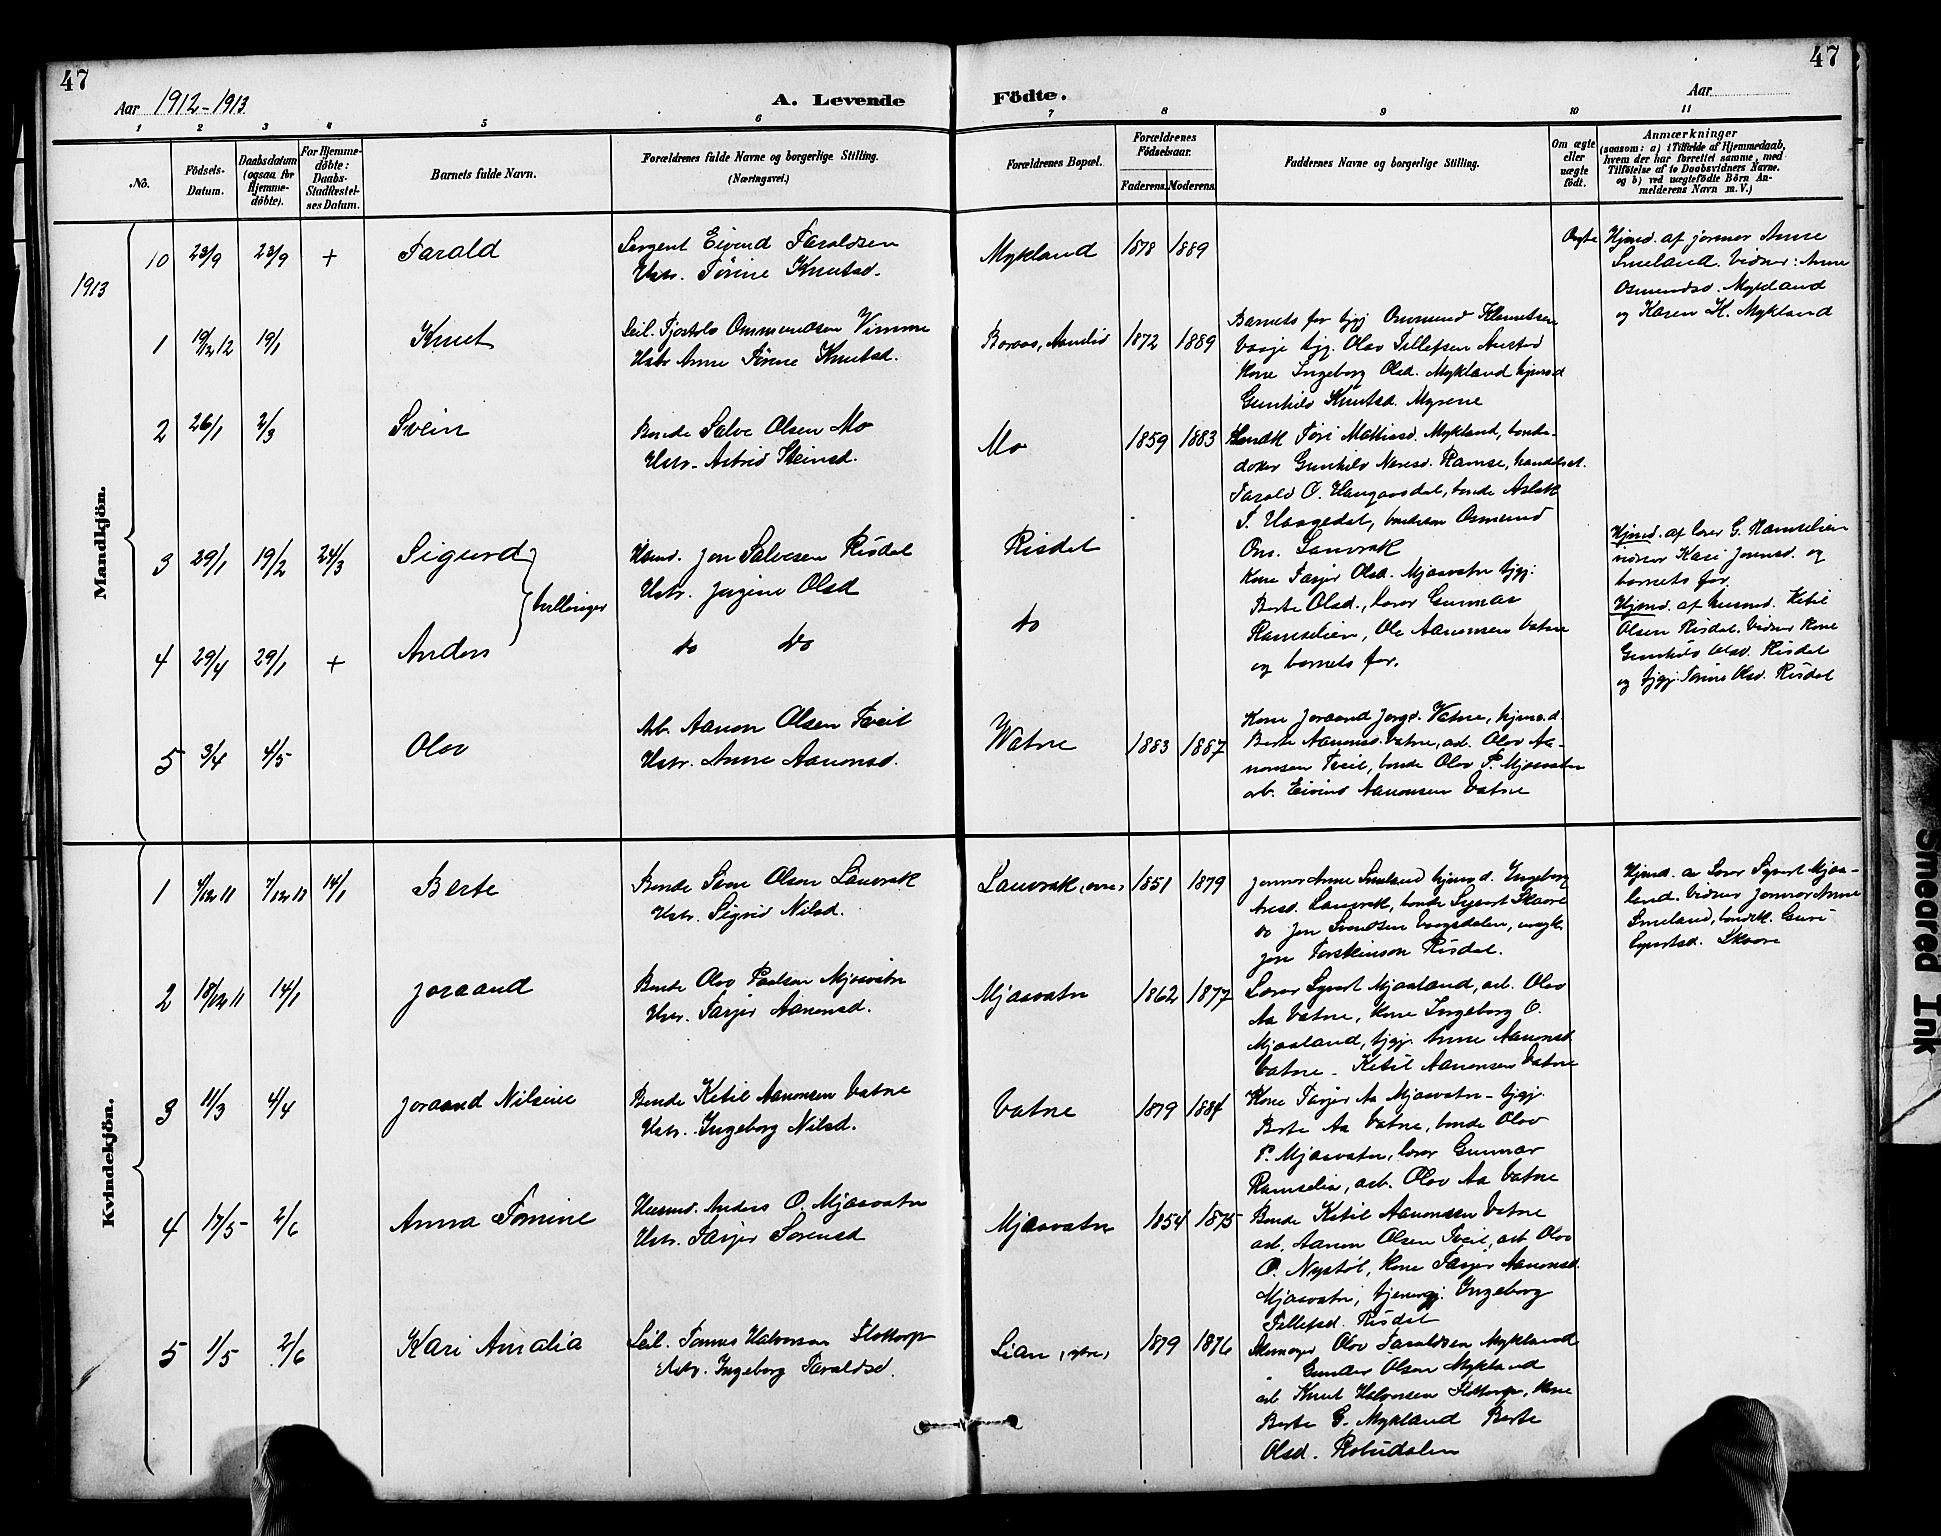 47
47
Aar 1912-1913
A. Levende Födte.
Aar
1 2 3 4 5 6 7 8 9 10 11
No.
Födsels-Datum.
Daabsdatum (ogsaa for Hjemme-döbte).
For Hjemme-döbte: Daabs-Stadfæstel-ses Datum.
Barnets fulde Navn.
Forældrenes fulde Navne og borgerlige Stilling. (Næringsvei.)
Forældrenes Bopæl.
Forældrenes Födselsaar.
Faderens. Moderens.
Faddernes Navne og borgerlige Stilling.
Om ægte eller uægte födt.
Anmærkninger
(saasom: a) i Tilfælde af Hjemmedaab,
hvem der har forrettet samme, med
Tilföielse af to Daabsvidners Navne.
og b) ved uægtefödte Börn An-
melderens Navn m. V.)
Mandkjön.
10 23/9 23/9 + Tarald
Sergent Eivind Taraldsen
Hstr. Tørine Knutsd.
Mykland 1878 1889
Ægte
Hjmd. af jormor Anne
Smeland. Vidner: Anne
Osmundsd. Mykland
og Karen K. Mykland
1913
1 19/12 12 19/1 Knut
Seil. Tjostolv Ommundsen Vimme
Hstr Anne Tørine Knutsd.
Boraas, Aamlid 1872 1889
Barnets far tjgj Ommund Klemetsen
Vaaje tjg. Olav Tellefsen Austad
Kone Ingeborg Olsd. Mykland hjemsd
Gunhild Knutsd. Myrene
2 26/1 2/3 Svein
Bonde Salve Olsen Mo
Hstr. Astrid Steinsd.
Mo 1859 1883
Tori Mathisd. Mykland, bonde-
doter Gunhild Neresd. Ramse, handelsst.
Tarald O. Haugaasdal, bonde Aslak
T. Haagedal, bondeson Osmund
Om. Lauvrak
3 29/1 19/2 24/3 Sigurd
tvillinger
Husmd. Jon Salvesen Risdal
Hstr. Jørgine Olsd
Risdal
Kone Tarjer Olsd. Mjaavatn tjgj.
Berte Olsd., lærer Gunnar
Ramselien, Ole Aanonsen Vatne
og barnets far.
Hjmd. af lærer G. Ramselien
vidner Kari Jonnsd. og
barnets far.
4 29/4 29/1 + Anders
do do
do
Hjmd. af husmd. Ketil
Olsen Risdal. Vidner Kone
Gunhild Olsd. Risdal
og tjgj. Torine Olsd. Risdal
5 3/4 4/5 Olav
Arb. Aanon Olsen Tveit
Hstr. Anne Aanonsd.
Watne 1883 1887
Kone Joraand Jorgd. Vatne, hjemsd.
Berte Aanonsd. Vatne, arb. Olav Aa-
nonsen Tveit, bonde Olav P. Mjaavatn
arb. Eivind Aanonsen Vatne
Kvindekjön.
1 4/12 11 7/12 11 14/1 Berte
Bonde Sven Olsen Lauvrak
Hstr. Sigrid Nilsd.
Lauvrak, øvre 1851 1879
Jormor Anne Smeland hjemsd. Ingeborg
Aresd. Lauvrak, bonde Syvert Skaare
do Jon Svendsen Vaagsdalen, ungk.
Jon Torsteinson Risdal.
Hjmd. av Lærer Syvert Mjaa-
land. Vidner Jormor Anne
Smeland, bondek. Guri
Syvertsd. Skaare
2 18/12 11 14/1 Joraand
Bonde Olav Paalsen Mjaavatn
Hstr. Tarjer Aanonsd.
Mjaavatn 1862 1877
Lærer Syvert Mjaaland, arb. Olav
Aa Vatne, Kone Ingeborg O.
Mjaaland, tjgj. Anne Aanonsd.
Vatne - Ketil Aanonsen Vatne
3 11/3 4/4 Joraand Nilsine
Bonde Ketil Aanonsen Vatne
Hstr. Ingeborg Nilsd.
Vatne 1879 1884
Kone Tarjer Aa Mjaavatn - tjgj.
Berte Aa Vatne, bonde Olav
P. Mjaavatn, lærer Gunnar
Ramselien, arb. Olav Aa Vatne
4 17/5 2/6 Anna Tomine
Husmd. Anders O. Mjaavatn
Hstr. Tarjer Sorensd
Mjaavatn 1854 1875
Bonde Ketil Aanonsen Vatne
arb. Aanon Olsen Tveit, arb Olav
O. Nystøl, Kone Tarjer Aanonsd.
Mjaavatn, tjenergj. Ingeborg
Tellefsd. Risdal
5 1/5 2/6 Kari Amalia
Seil. Tomas Halvorsen Flottorp
Hstr. Ingeborg Taraldsd.
Lian, ytre 1879 1876
Skomager Olav Taraldsen Mykland
" Gunder Olsen Mykland
arb Knut Halvorsen Flottorp, Kone
Berte G. Mykland Berte
Olsd. Robudalen
Smeared Ink